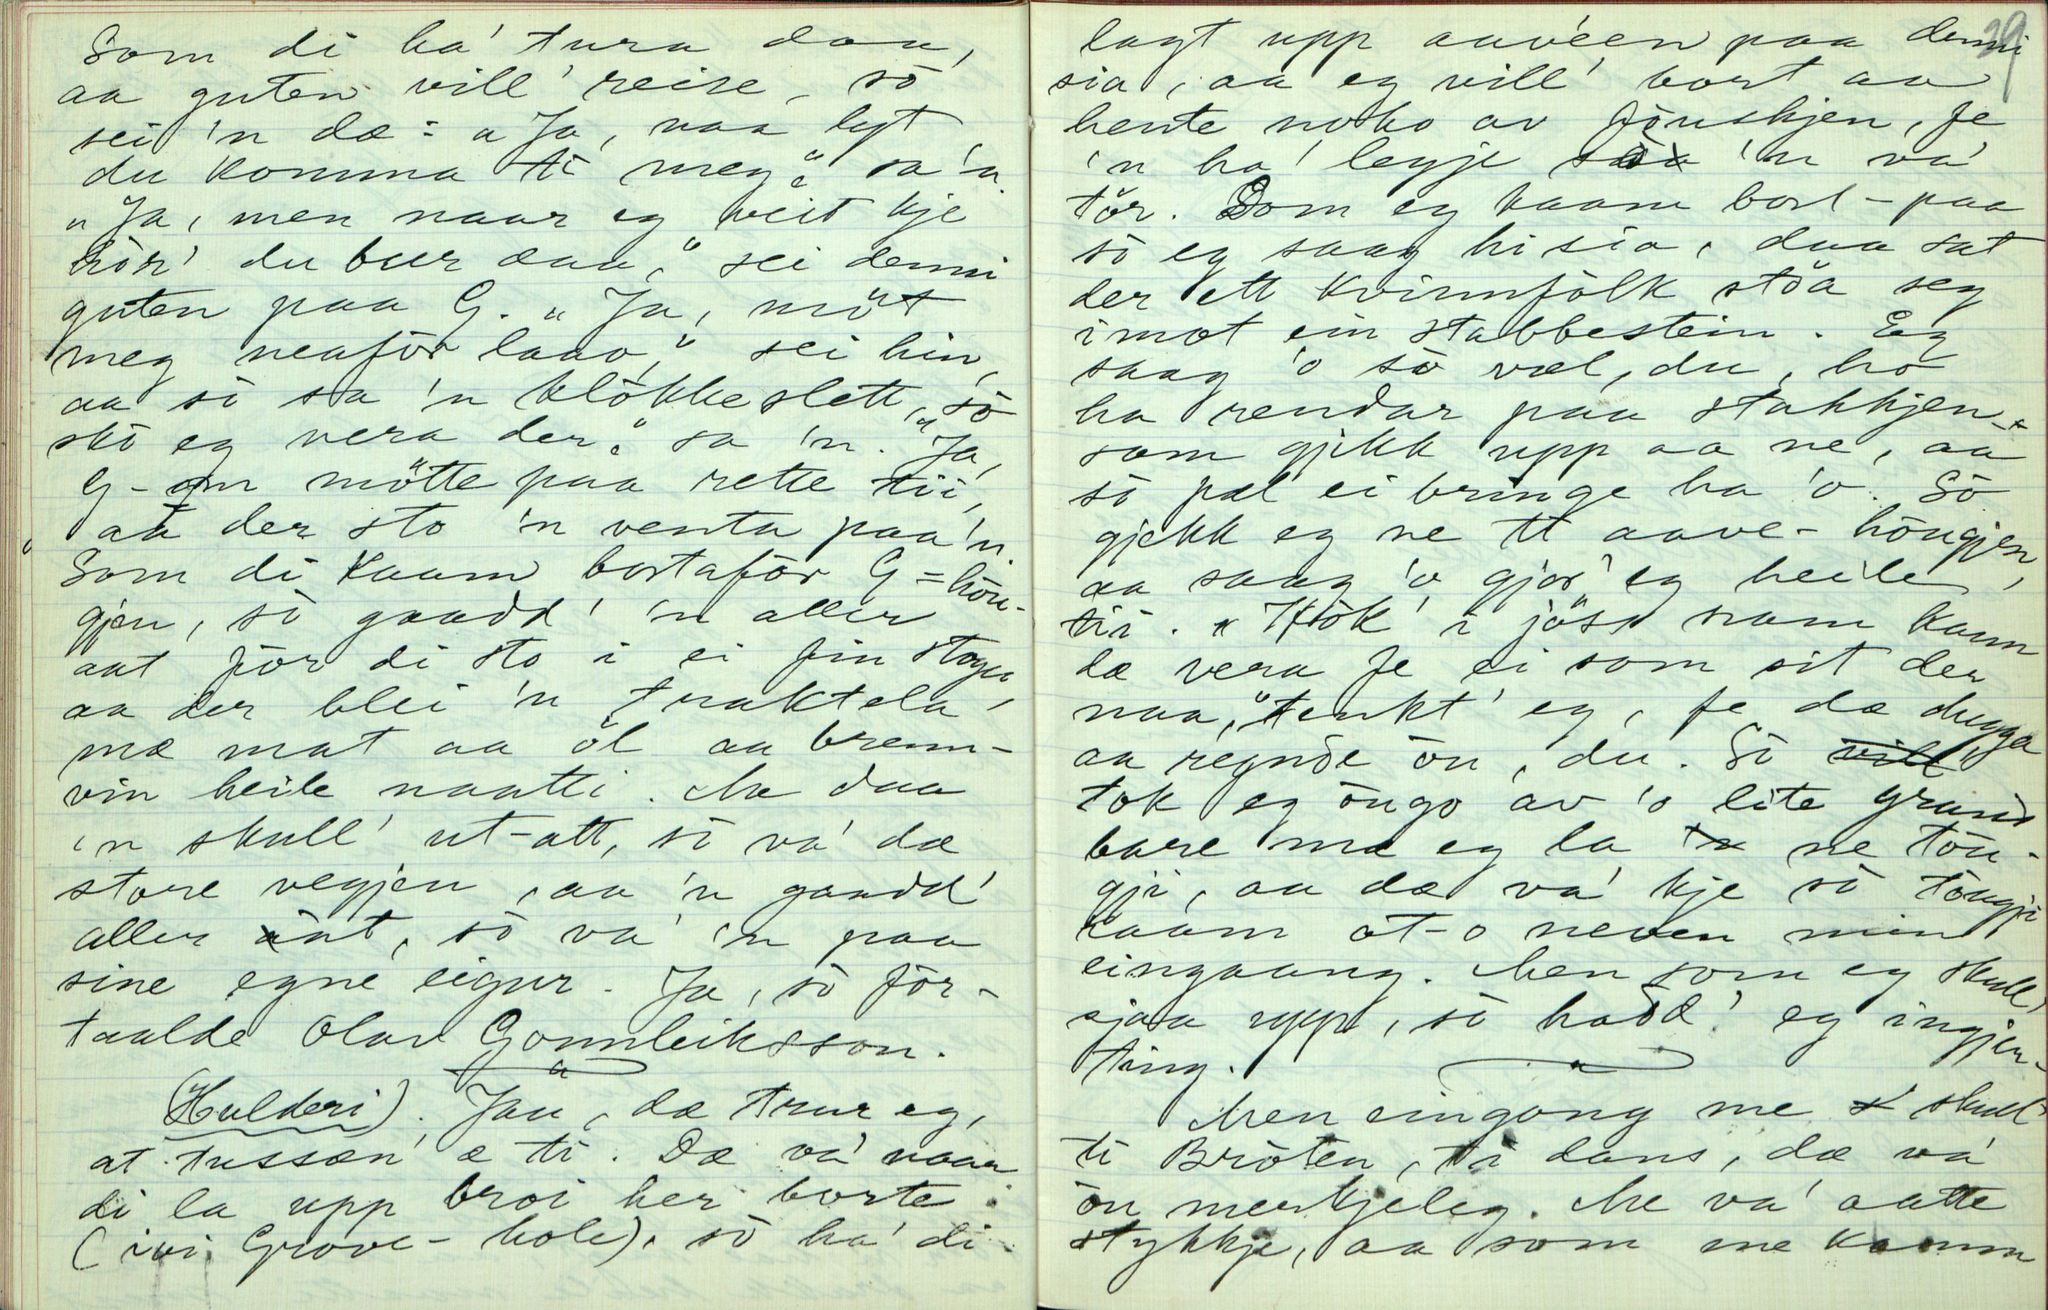 Som di ha' tura daa,
aa guten vill' reise, so
sei 'n dæ: „Ja, naa lyt
du komma ti meg," sa 'n.
„Ja, men naar eg veit kje
hör' du bur daa," sei denni
guten paa G. „Ja, möt
meg neafor laao," sei hin,
aa sò sa 'n klòkkeslett, „sò
skò eg vera der," sa 'n. „Ja,
G-en mötte paa rette tii,
aa der sto 'n venta paa 'n.
Som di kaam bortafor G=hòu-
gjen, sò gaadd' 'n aller
aat för di sto i ei fin stogu
aa der blei 'n traktela'
mæ mat aa öl aa brenn-
vin heile naatti. Me daa
'n skull' ut-att, sò va' dæ
store vegjen, aa 'n gaadd'
aller aat, sò va' 'n paa
sine egne eigur. Ja, sò för-
taalde Olav Gonnleiksson.
(Hulderi). Jau, dæ trur eg,
at tussæn' æ ti. Dæ va' naar
di la upp broi her borte
(ivi Grove-hole), sò ha' di
29
lagt upp aavéen paa denni
sia, aa eg vill' bort aa
hente noko av fòuskjen, fe
'n ha' legje sòa 'n va'
tör. Som eg kaam bort-paa
sò eg saag hi sia, daa sat
der ett kvinnfòlk stöa seg
imot ein stabbestein. Eg
saag 'o sò væl, du, ho
ha rendar paa stakkjen
som gjikk upp aa ne, aa
sò pæl ei bringe ha 'o. Sò
gjekk eg ne tt aave-hòugjen,
aa saag 'o gjor' eg heile
tii. „Hòk' i jöss nam kann
dæ vera fe ei som sit der
naa," tenkt' eg, fe dæ dugga
aa regnde òu, du. Sò
tok eg òugo av 'o lite grand
bare mæ eg la ne tòu-
gji, aa dæ va' kje sò tòugji
kaam òt-o neven min
eingaang. Men som eg skull'
sjaa upp, sò hadd' eg ingjen-
ting.
Men eingong me skull'
ti Bròten, ti dans, dæ va'
òu merkjeleg. Me va' aatte
stykkje, aa som me kaamm